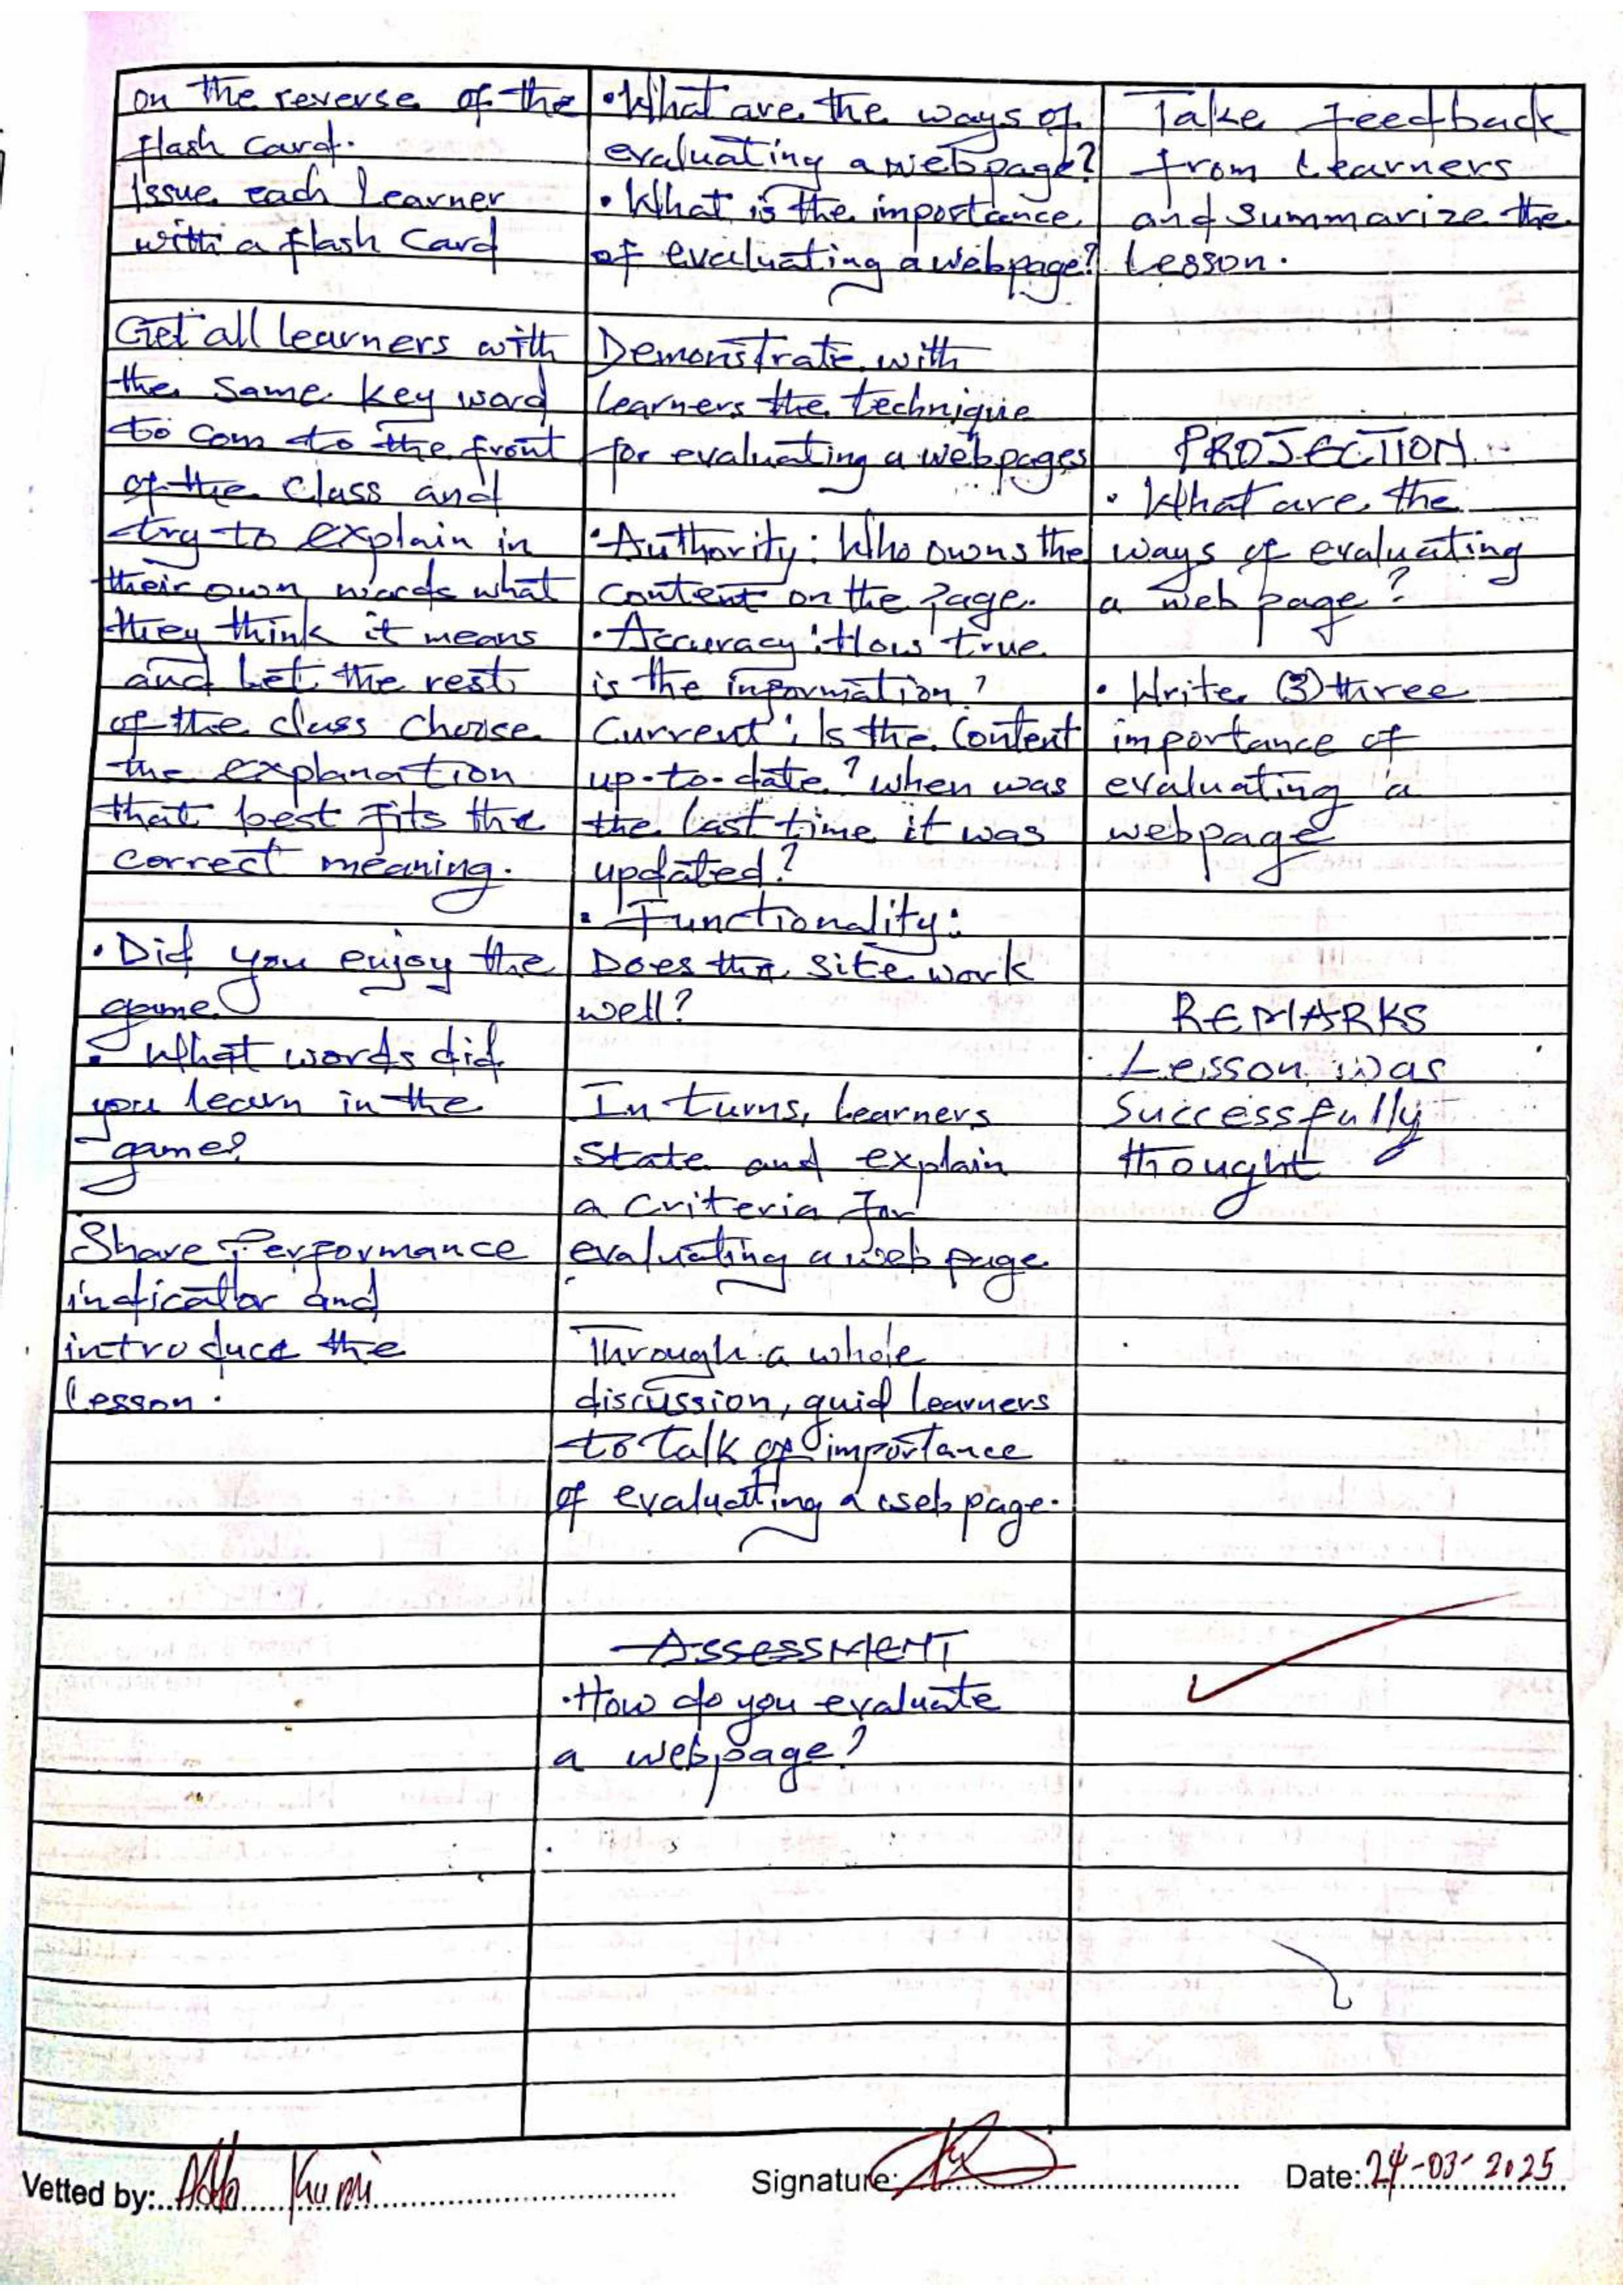 on the reverse of the
flash card.
Issue each learner
with a flash card
Get all learners with
the same key word
to com to the front
of the class and
try to explain in
their own words what
they think it means
and let the rest
of the class choose
the explanation
that best fits the
correct meaning.
• Did you enjoy the
game
• What words did
you learn in the
game?
Share Performance
indicator and
introduce the
lesson.
• What are the ways of
evaluating a webpage?
• What is the importance
of evaluating a webpage?
Demonstrate with
learners the technique
for evaluating a webpages
• Authority: Who owns the
content on the page.
• Accuracy: How true
is the information?
Current: Is the content
up-to-date? when was
the last time it was
updated?
• Functionality:
Does the site work
well?
In turns, learners
state and explain
a criteria for
evaluating a web page
Through a whole
discussion, guid learners
to talk of importance
of evaluating a web page.
ASSESSMENT
• How do you evaluate
a webpage?
Take feedback
from learners
and summarize the
lesson.
PROJECTION
• What are the
ways of evaluating
a web page?
• Write (3) three
importance of
evaluating a
webpage
REMARKS
Lesson was
Successfully
thought
Vetted by: Addo Kumi
Signature:
Date: 24-03-2025